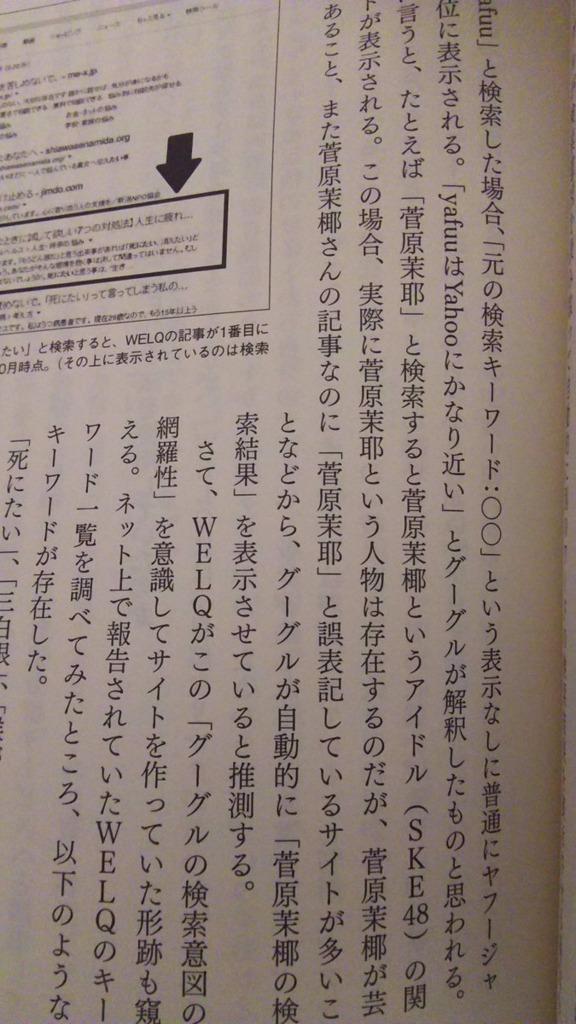 afuu」と検索した場合、「元の検索キーワード:〇〇」という表示なしに普通にヤフージャ
位に表示される。「yafuuはYahooにかなり近い」とグーグルが解釈したものと思われる。
言うと、たとえば「菅原茉耶」と検索すると菅原茉椰というアイドル(SKE48)の関
が表示される。この場合、実際に菅原茉耶という人物は存在するのだが、菅原茉椰が芸
あること、また菅原茉椰さんの記事なのに「菅原茉耶」と誤表記しているサイトが多いこ
となどから、グーグルが自動的に「菅原茉椰の検
索結果」を表示させていると推測する。
さて、WELQがこの「グーグルの検索意図の
網羅性」を意識してサイトを作っていた形跡も窺
える。ネット上で報告されていたWELQのキー
ワード一覧を調べてみたところ、以下のような
キーワードが存在した。
「死にたい」、「三白眼」、
たい」と検索すると、WELQの記事が1番目に
0月時点。(その上に表示されているのは検索
shiawasenamida.org
止める - jimdo.com
ときに試して欲しい7つの対処法】人生に疲れ...
めないで。「死にたい」って言ってしまう私の...